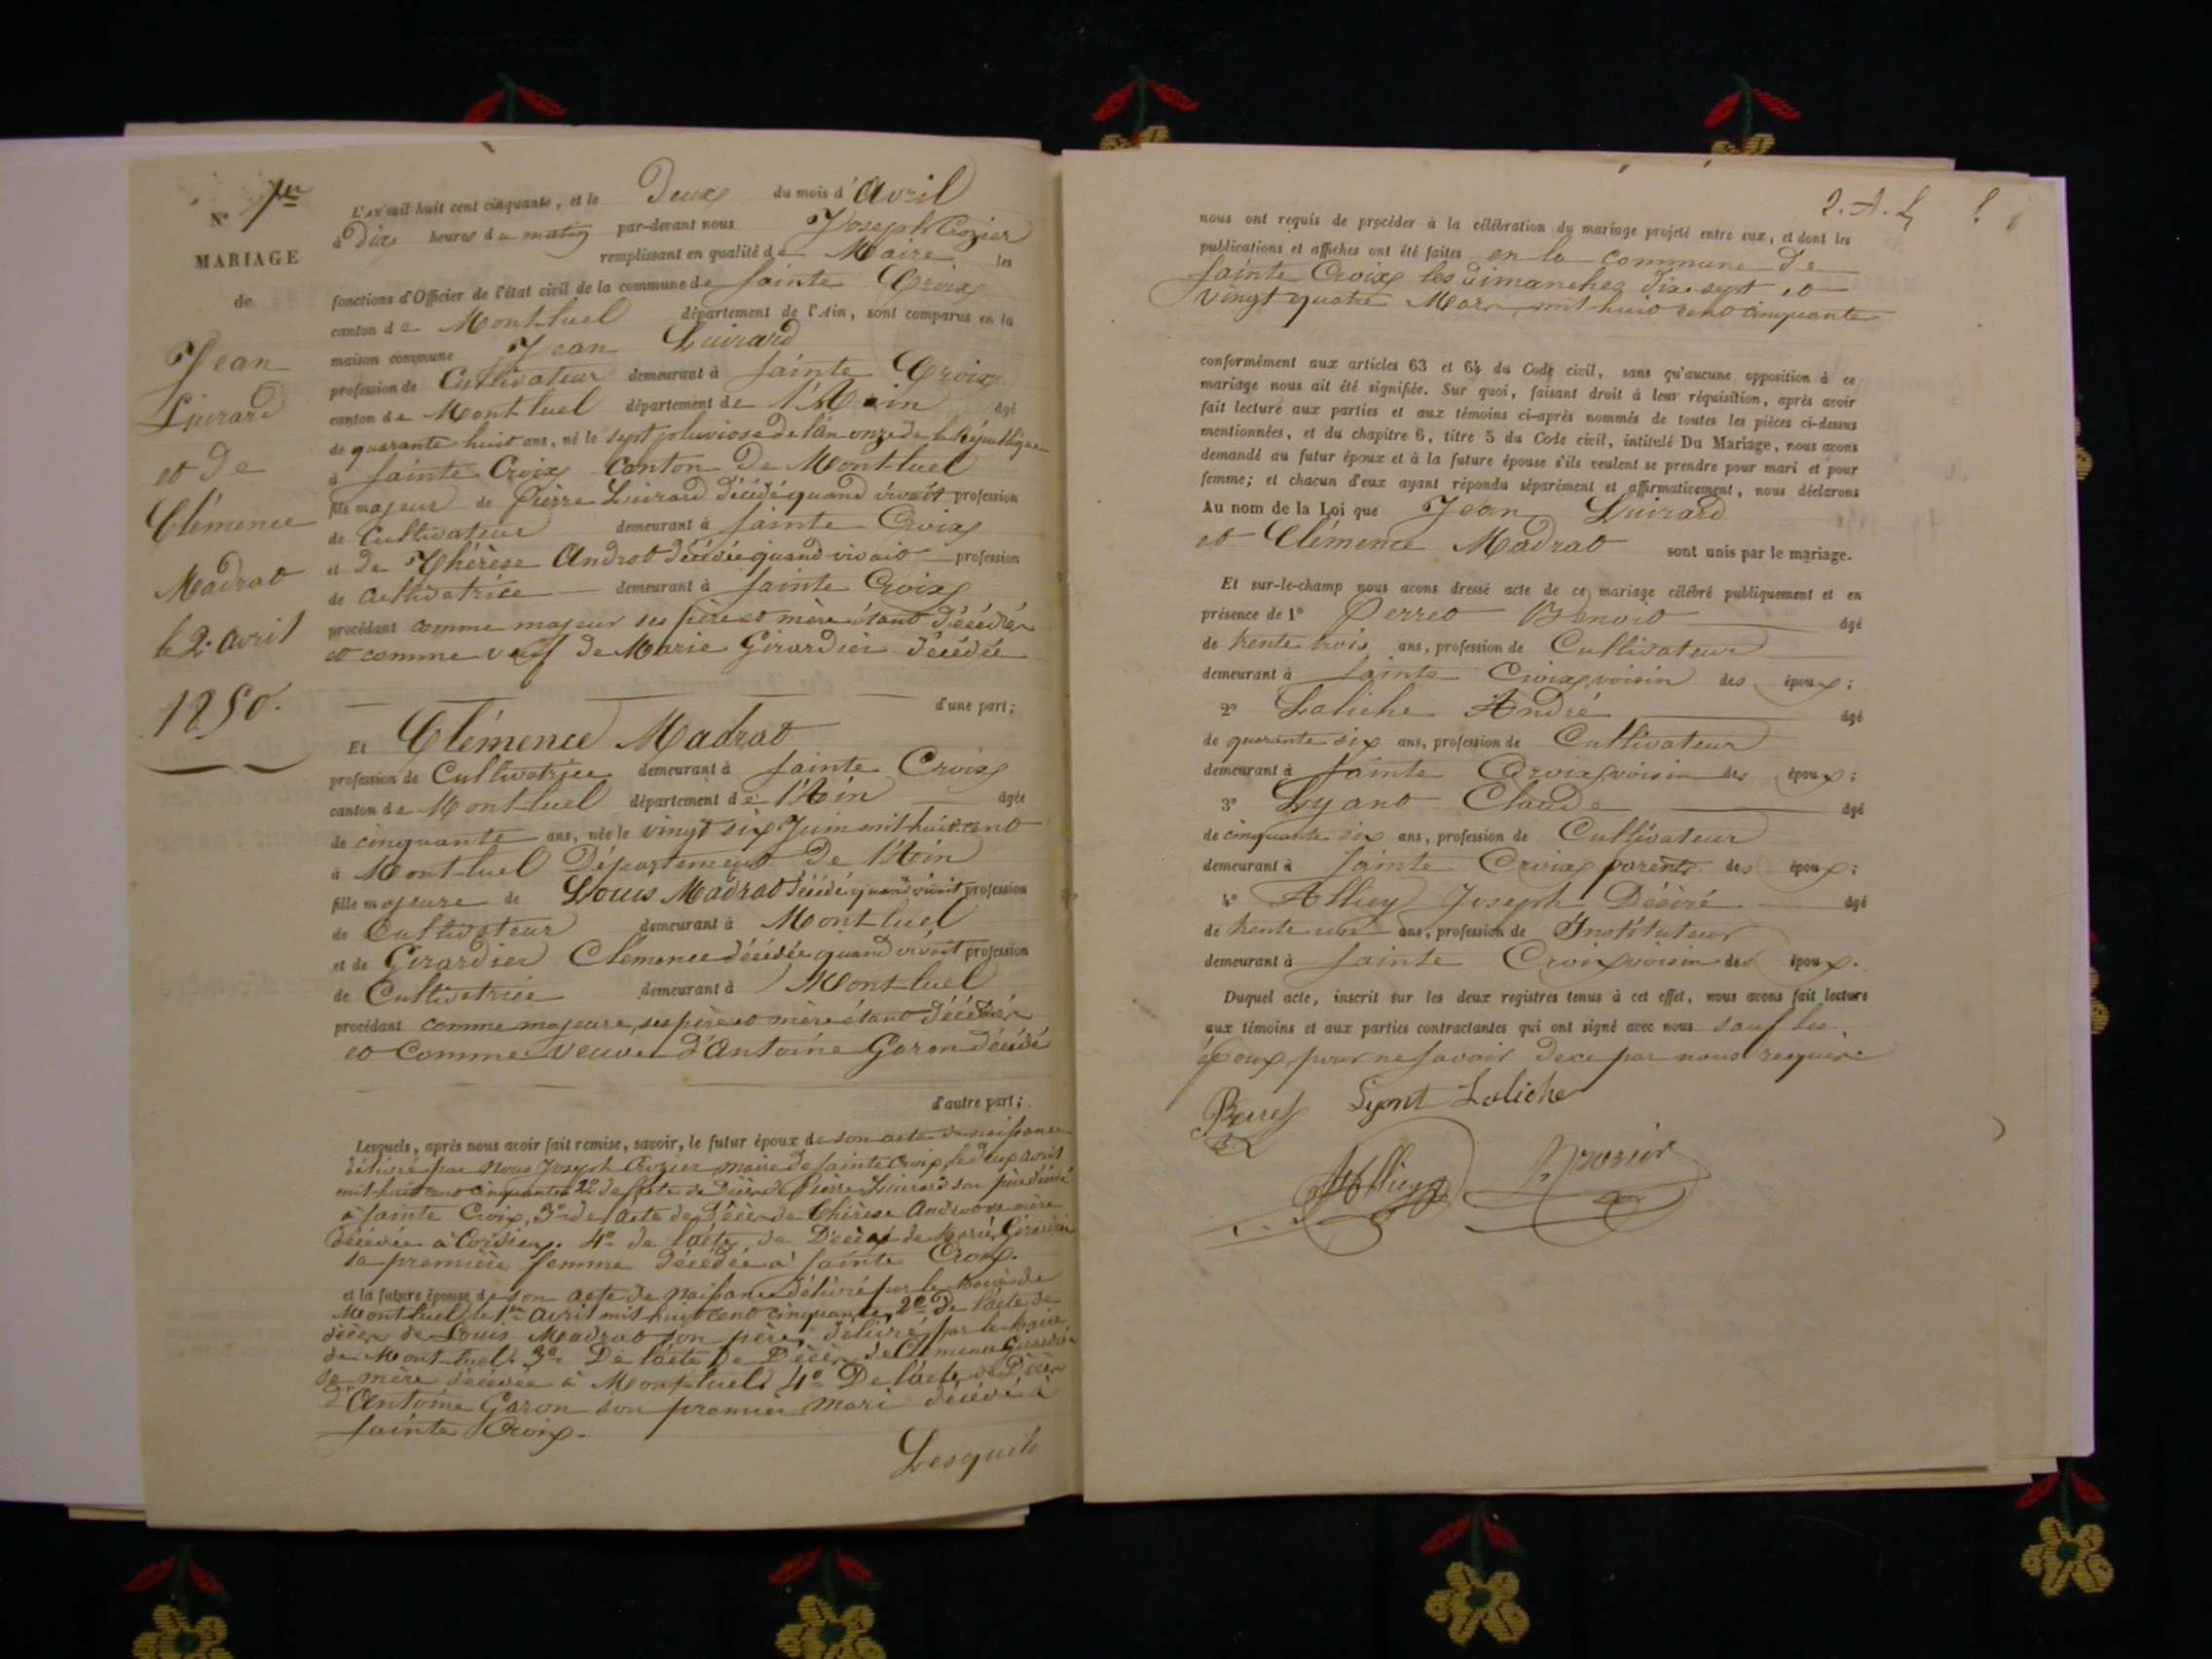 N° 1er
MARIAGE
de
Jean
Luirard
et de
Clémence
Madrat
le 2. avril
1850.
L'an mil huit cent cinquante, et le Deux du mois d'Avril
à Dix heures du matin par-devant nous Joseph Crozier
remplissant en qualité de Maire les
fonctions d'Officier de l'état civil de la commune de Sainte Croix
canton de Montluel département de l'Ain, sont comparus en la
maison commune Jean Luirard
profession de Cultivateur demeurant à Sainte Croix
canton de Montluel département de l'Ain âgé
de quarante huit ans, né le sept pluviose de l'an onze de la République
à Sainte Croix Canton de Montluel
fils majeur de Pierre Luirard décédé quand vivait profession
de Cultivateur demeurant à Sainte Croix
et de Thérèse Androt décédée quand vivait profession
de Cultivatrice demeurant à Sainte Croix
procédant comme majeur ses père et mère étant décédés
et comme veuf de Marie Girardier décédée
d'une part;
Et Clémence Madrat
profession de Cultivatrice demeurant à Sainte Croix
canton de Montluel département de l'Ain âgée
de cinquante ans, née le vingt six Juin mil huit cent
à Montluel Département de l'Ain
fille majeure de Louis Madrat décédé quand vivait profession
de Cultivateur demeurant à Montluel
et de Girardier Clemence décédée quand vivait profession
de Cultivatrice demeurant à Montluel
procédant comme majeure, ses père et mère étant décédés
et comme veuve d'Antoine Garon décédé
d'autre part;
Lesquels, après nous avoir fait remise, savoir, le futur époux de son acte de naissance
délivré par nous Joseph Crozier maire de Sainte Croix, le deux avril
mil huit cent cinquante 2° de l'acte de Décès de Pierre Luirard son père décédé
à Sainte Croix, 3° de l'acte de Décès de Thérèse Androt sa mère
décédée à Cordieux. 4° de l'acte de Décès de Marie Girardier
sa première femme décédée à Sainte Croix.
et la future épouse de son acte de naissance délivré par le Maire de
Montluel le 1er avril mil huit cent cinquante, 2° De l'acte de
décès de Louis Madrat son père, délivré par le Maire
de Montluel. 3° De l'acte de Décès de Clémence Girardier
sa mère décédée à Montluel 4° De l'acte de Décès
d'Antoine Garon son premier mari décédé à
Sainte Croix.
Lesquels
nous ont requis de procéder à la célébration du mariage projeté entre eux, et dont les
publications et affiches ont été faites en la commune de
Sainte Croix les dimanches dix-sept et
vingt quatre Mars mil huit cent cinquante
conformément aux articles 63 et 64 du Code civil, sans qu'aucune opposition à ce
mariage nous ait été signifiée. Sur quoi, faisant droit à leur réquisition, après avoir
fait lecture aux parties et aux témoins ci-après nommés de toutes les pièces ci-dessus
mentionnées, et du chapitre 6, titre 5 du Code civil, intitulé Du Mariage, nous avons
demandé au futur époux et à la future épouse s'ils veulent se prendre pour mari et pour
femme; et chacun d'eux ayant répondu séparément et affirmativement, nous déclarons
Au nom de la Loi que Jean Luirard
et Clémence Madrat sont unis par le mariage.
Et sur-le-champ nous avons dressé acte de ce mariage célébré publiquement et en
présence de 1° Perret Benoit âgé
de trente trois ans, profession de Cultivateur
demeurant à Sainte Croix, voisin des époux;
2° Laliche André âgé
de quarante six ans, profession de Cultivateur
demeurant à Sainte Croix, voisin des époux;
3° Lyant Claude âgé
de cinquante six ans, profession de Cultivateur
demeurant à Sainte Croix parent des époux;
4° Alliey Joseph Désiré âgé
de trente un ans, profession de Instituteur
demeurant à Sainte Croix voisin des époux.
Duquel acte, inscrit sur les deux registres tenus à cet effet, nous avons fait lecture
aux témoins et aux parties contractantes qui ont signé avec nous sauf les
époux, pour ne savoir de ce par nous requis.
Perret Lyant Laliche
Alliey Crozier